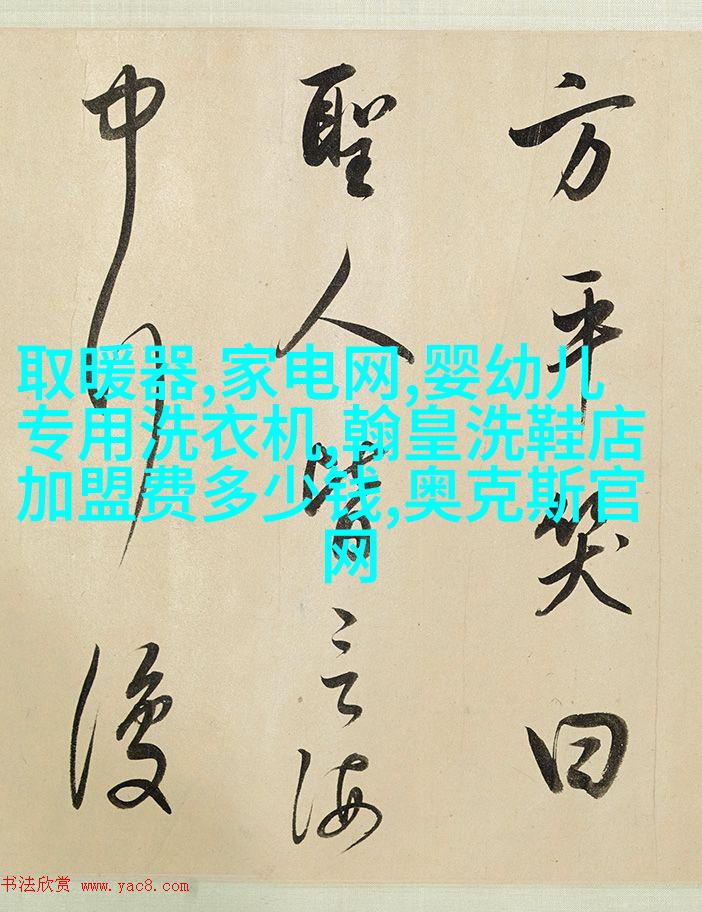 方平笑曰
聖人皆言海
中行復
取暖器,家电网,婴幼儿
专用洗衣机,翰皇洗鞋店
加盟费多少钱,奥克斯官
网
书法欣赏 www.yac8.com